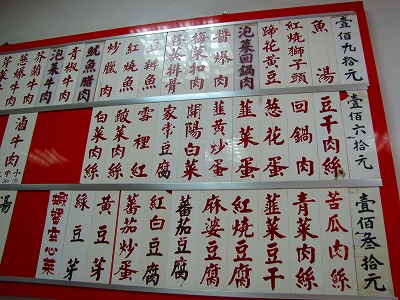 壹佰九拾元
魚湯
紅燒獅子頭
蹄花黃豆
泡菜回鍋肉
醬爆肉
梅菜扣肉
粉蒸排骨
豆瓣魚
紅燒魚
炒臘肉
魷魚腊肉
青椒牛肉
芥蘭牛肉
泡菜牛肉
蔥爆牛肉
芹菜牛肉
壹佰六拾元
豆干肉絲
回鍋肉
蔥花蛋
韮菜蛋
韮黃炒蛋
開陽白菜
家常豆腐
雪裡紅
酸菜肉絲
白菜肉絲
滷牛肉
壹佰叁拾元
苦瓜肉絲
青菜肉絲
韮菜豆干
紅燒豆腐
麻婆豆腐
蕃茄豆腐
紅白豆腐
蕃茄炒蛋
黃豆芽
綠豆芽
湯